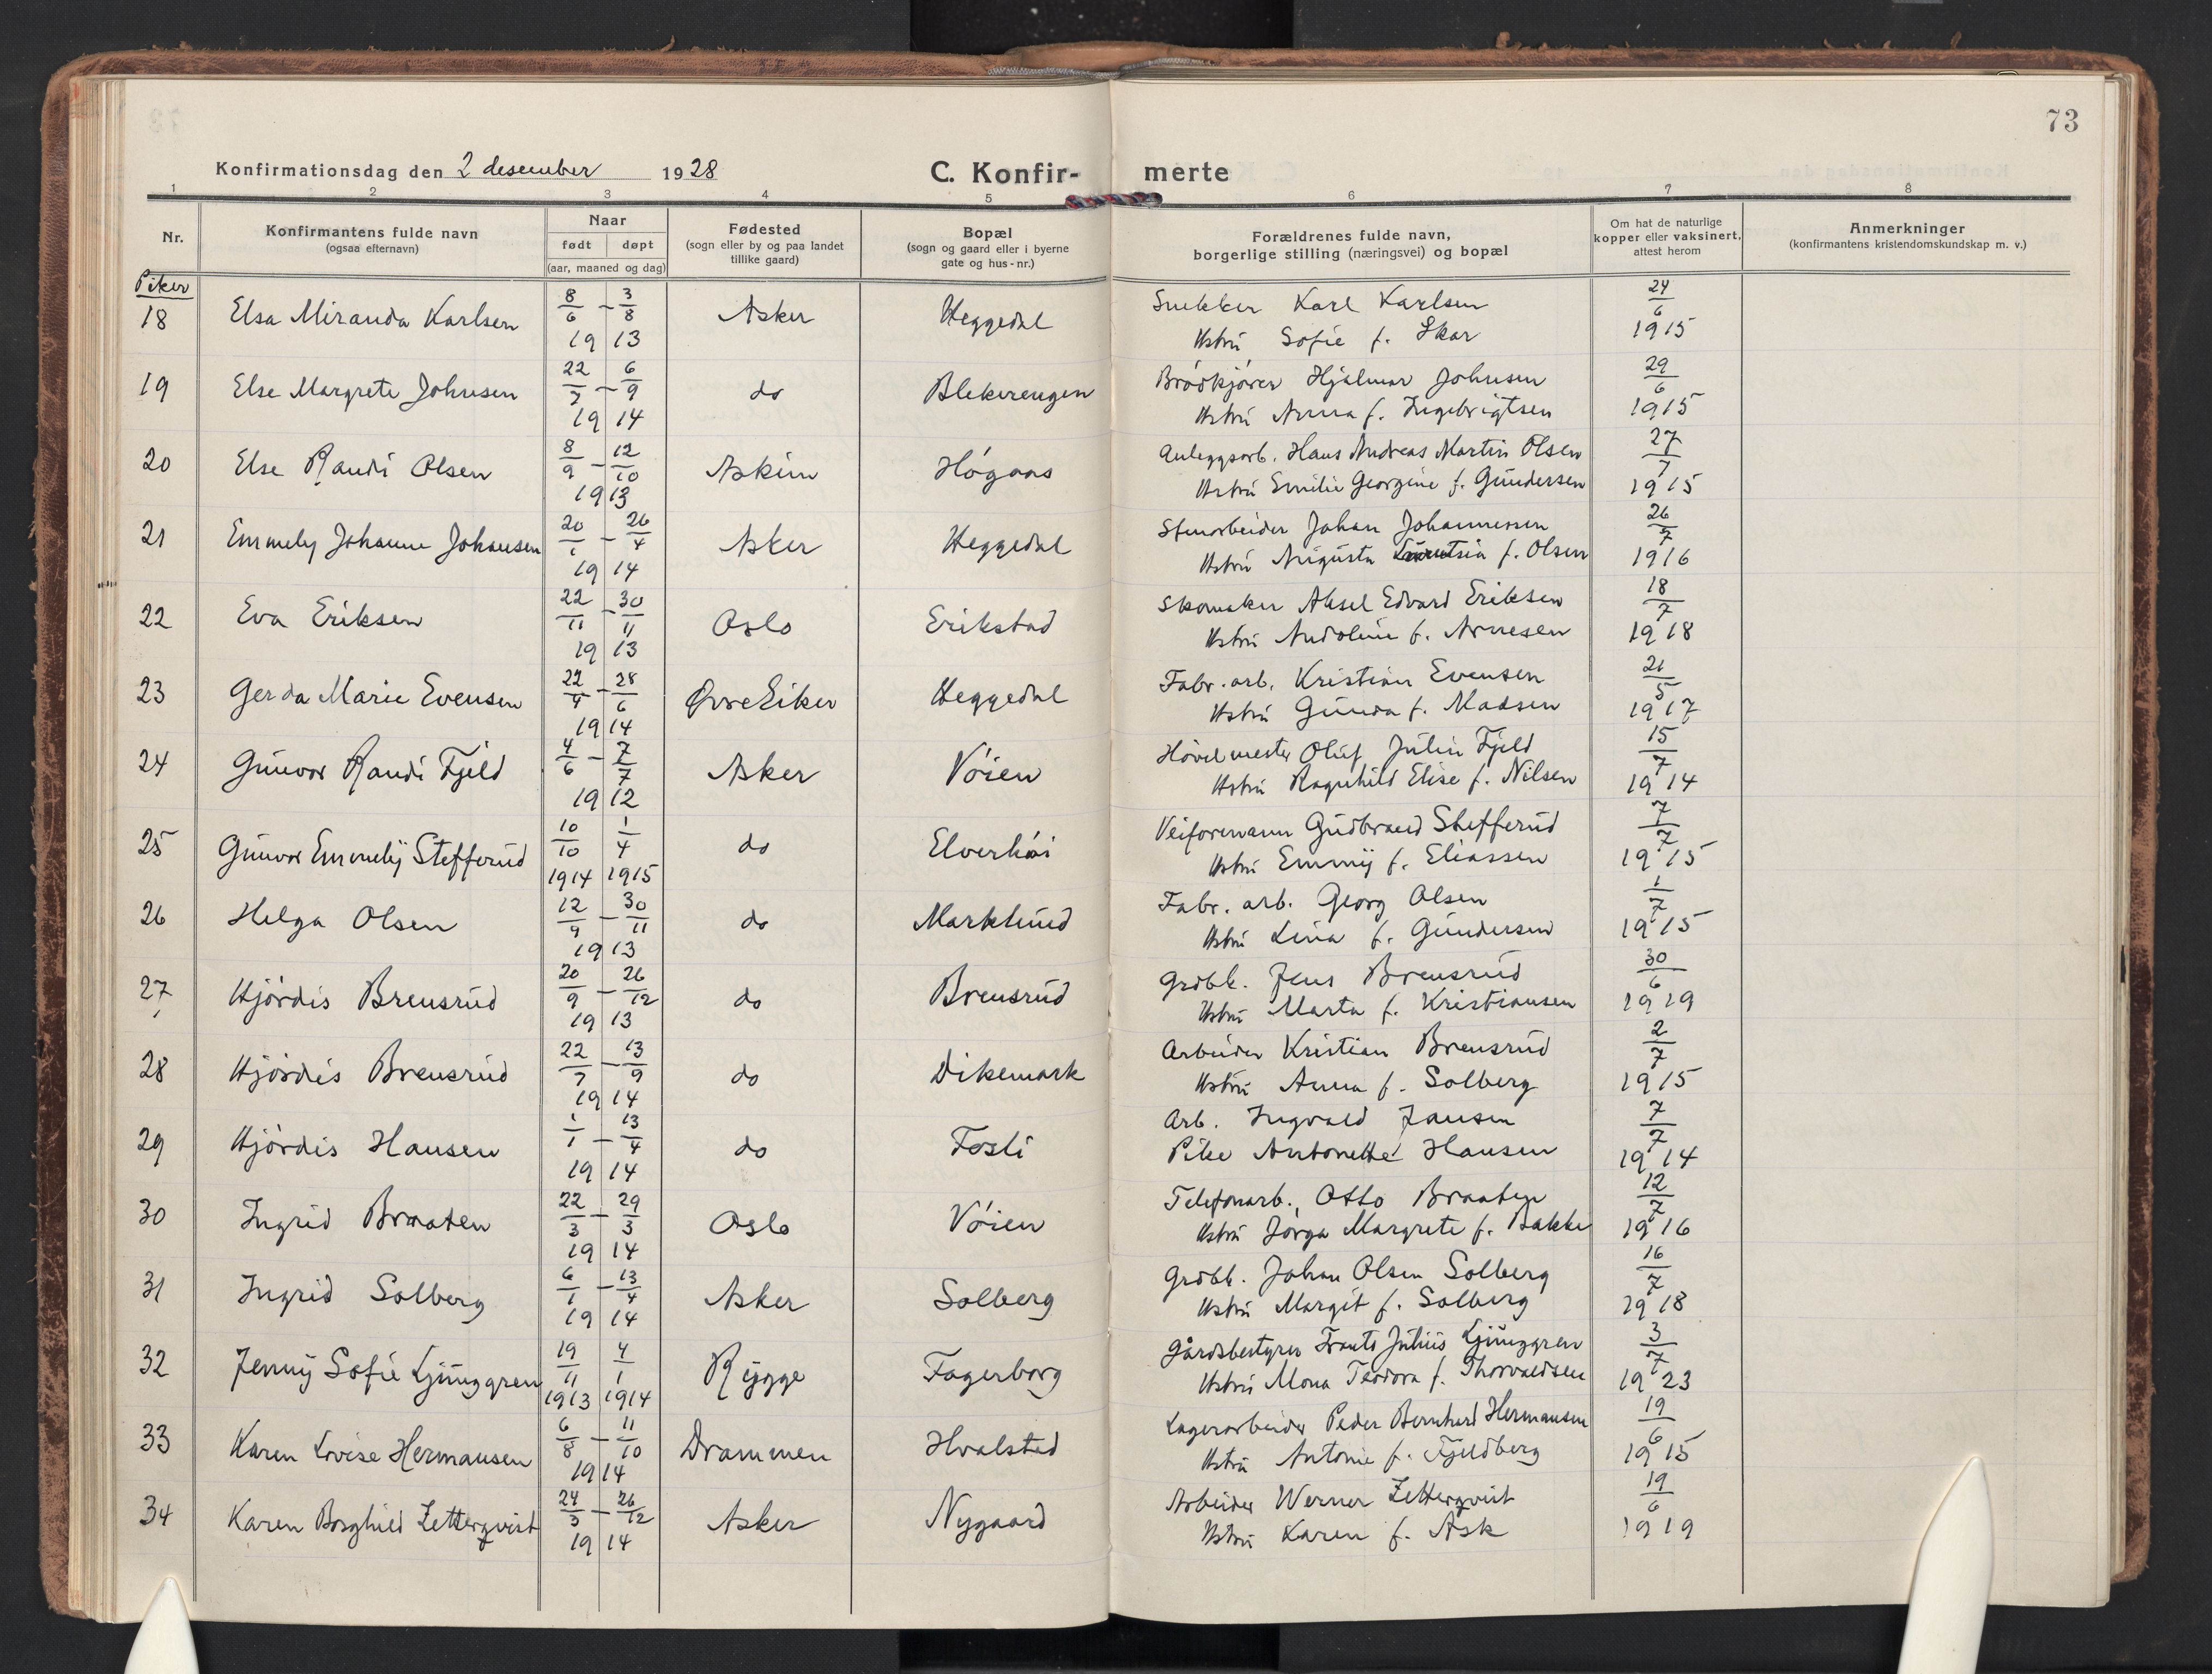 73
Konfirmationsdag den 2 desember 1928 C. Konfir- merte
1 2 3 4 5 6 7 8
Nr.
Konfirmantens fulde navn
(ogsaa efternavn)
Naar
født døpt
(aar, maaned og dag)
Fødested
(sogn eller by og paa landet
tillike gaard)
Bopæl
(sogn og gaard eller i byerne
gate og hus-nr.)
Forældrenes fulde navn,
borgerlige stilling (næringsvei) og bopæl
Om hat de naturlige
kopper eller vaksinert,
attest herom
Anmerkninger
(konfirmantens kristendomskundskap m. v.)
Piker
18 Elsa Miranda Karlsen 8/6 - 3/8 1913 Asker Heggedal Snekker Karl Karlsen 24/6
Hstrú Sofie f. Skar 1915
19 Else Margrete Johnsen 22/7 - 6/9 1914 do Blekerengen Brödkjörer Hjalmar Johnsen 29/6
Hstrú Anna f. Ingebrigtsen 1915
20 Else Randi Olsen 8/9 - 12/10 1913 Askim Högaas Anleggsarb. Hans Andreas Martin Olsen 27/7
Hstrú Emilie Georgine f. Gúndersen 1915
21 Emmely Johanne Johansen 20/1 - 26/4 1914 Asker Heggedal Stenarbeider Johan Johannessen 26/7
Hstrú Aúgústa f. Olsen 1916
22 Eva Eriksen 22/11 - 30/11 1913 Oslo Erikstad Skomaker Aksel Edvard Eriksen 18/7
Hstrú Andoline f. Arnesen 1918
23 Gerda Marie Evensen 22/4 - 28/6 1914 Øvre Eiker Heggedal Fabr. arb. Kristian Evensen 21/5
Hstrú Gúnda f. Madsen 1917
24 Gúnvor Randi Fjeld 4/6 - 7/7 1912 Asker Vöien Hövelmester Olúf Júlin Fjeld 15/7
Hstrú Ragnhild Elise f. Nilsen 1914
25 Gúnvor Emmely Stefferúd 10/10 1914 1/4 1915 do Elverhöi Veiformann Gúdbrand Stefferúd 7/7
Hstrú Emmy f. Eliassen 1915
26 Helga Olsen 12/9 - 30/11 1913 do Marklúnd Fabr. arb. Georg Olsen 1/7
Hstrú Lina f. Gúndersen 1915
27 Hjördis Brensrúd 20/9 - 26/12 1913 do Brensrúd Grdbr. Jens Brensrúd 30/6
Hstrú Marta f. Kristiansen 1919
28 Hjördis Brensrúd 22/7 - 13/9 1914 do Dikemark Arbeider Kristian Brensrúd 2/7
Hstrú Anna f. Solberg 1915
29 Hjördis Hansen 1/1 - 13/4 1914 do Fosli Arb. Ingvald Jansen 7/7
Pike Antonette Hansen 1914
30 Ingrid Braaten 22/3 - 29/3 1914 Oslo Vöien Telefonarb. Otto Braaten 12/7
Hstrú Jörga Margrete f. Bakke 1916
31 Ingrid Solberg 6/1 - 13/4 1914 Asker Solberg Grdbr. Johan Olsen Solberg 16/7
Hstrú Margit f. Solberg 1918
32 Jenny Sofie Ljúnggren 19/11 1913 4/1 1914 Rygge Fagerborg Gårdsbestyrer Frants Júliús Ljúnggren 3/7
Hstrú Mona Teodora f. Thorvaldsen 1923
33 Karen Lovise Hermansen 6/8 - 11/10 1914 Drammen Hvalstad Lagerarbeider Peder Bernhard Hermansen 19/6
Hstrú Antonie f. Fjeldberg 1915
34 Karen Borghild Zetterqvist 24/3 - 26/12 1914 Asker Nygaard Arbeider Werner Zetterqvist 19/6
Hstrú Karen f. Ask 1919